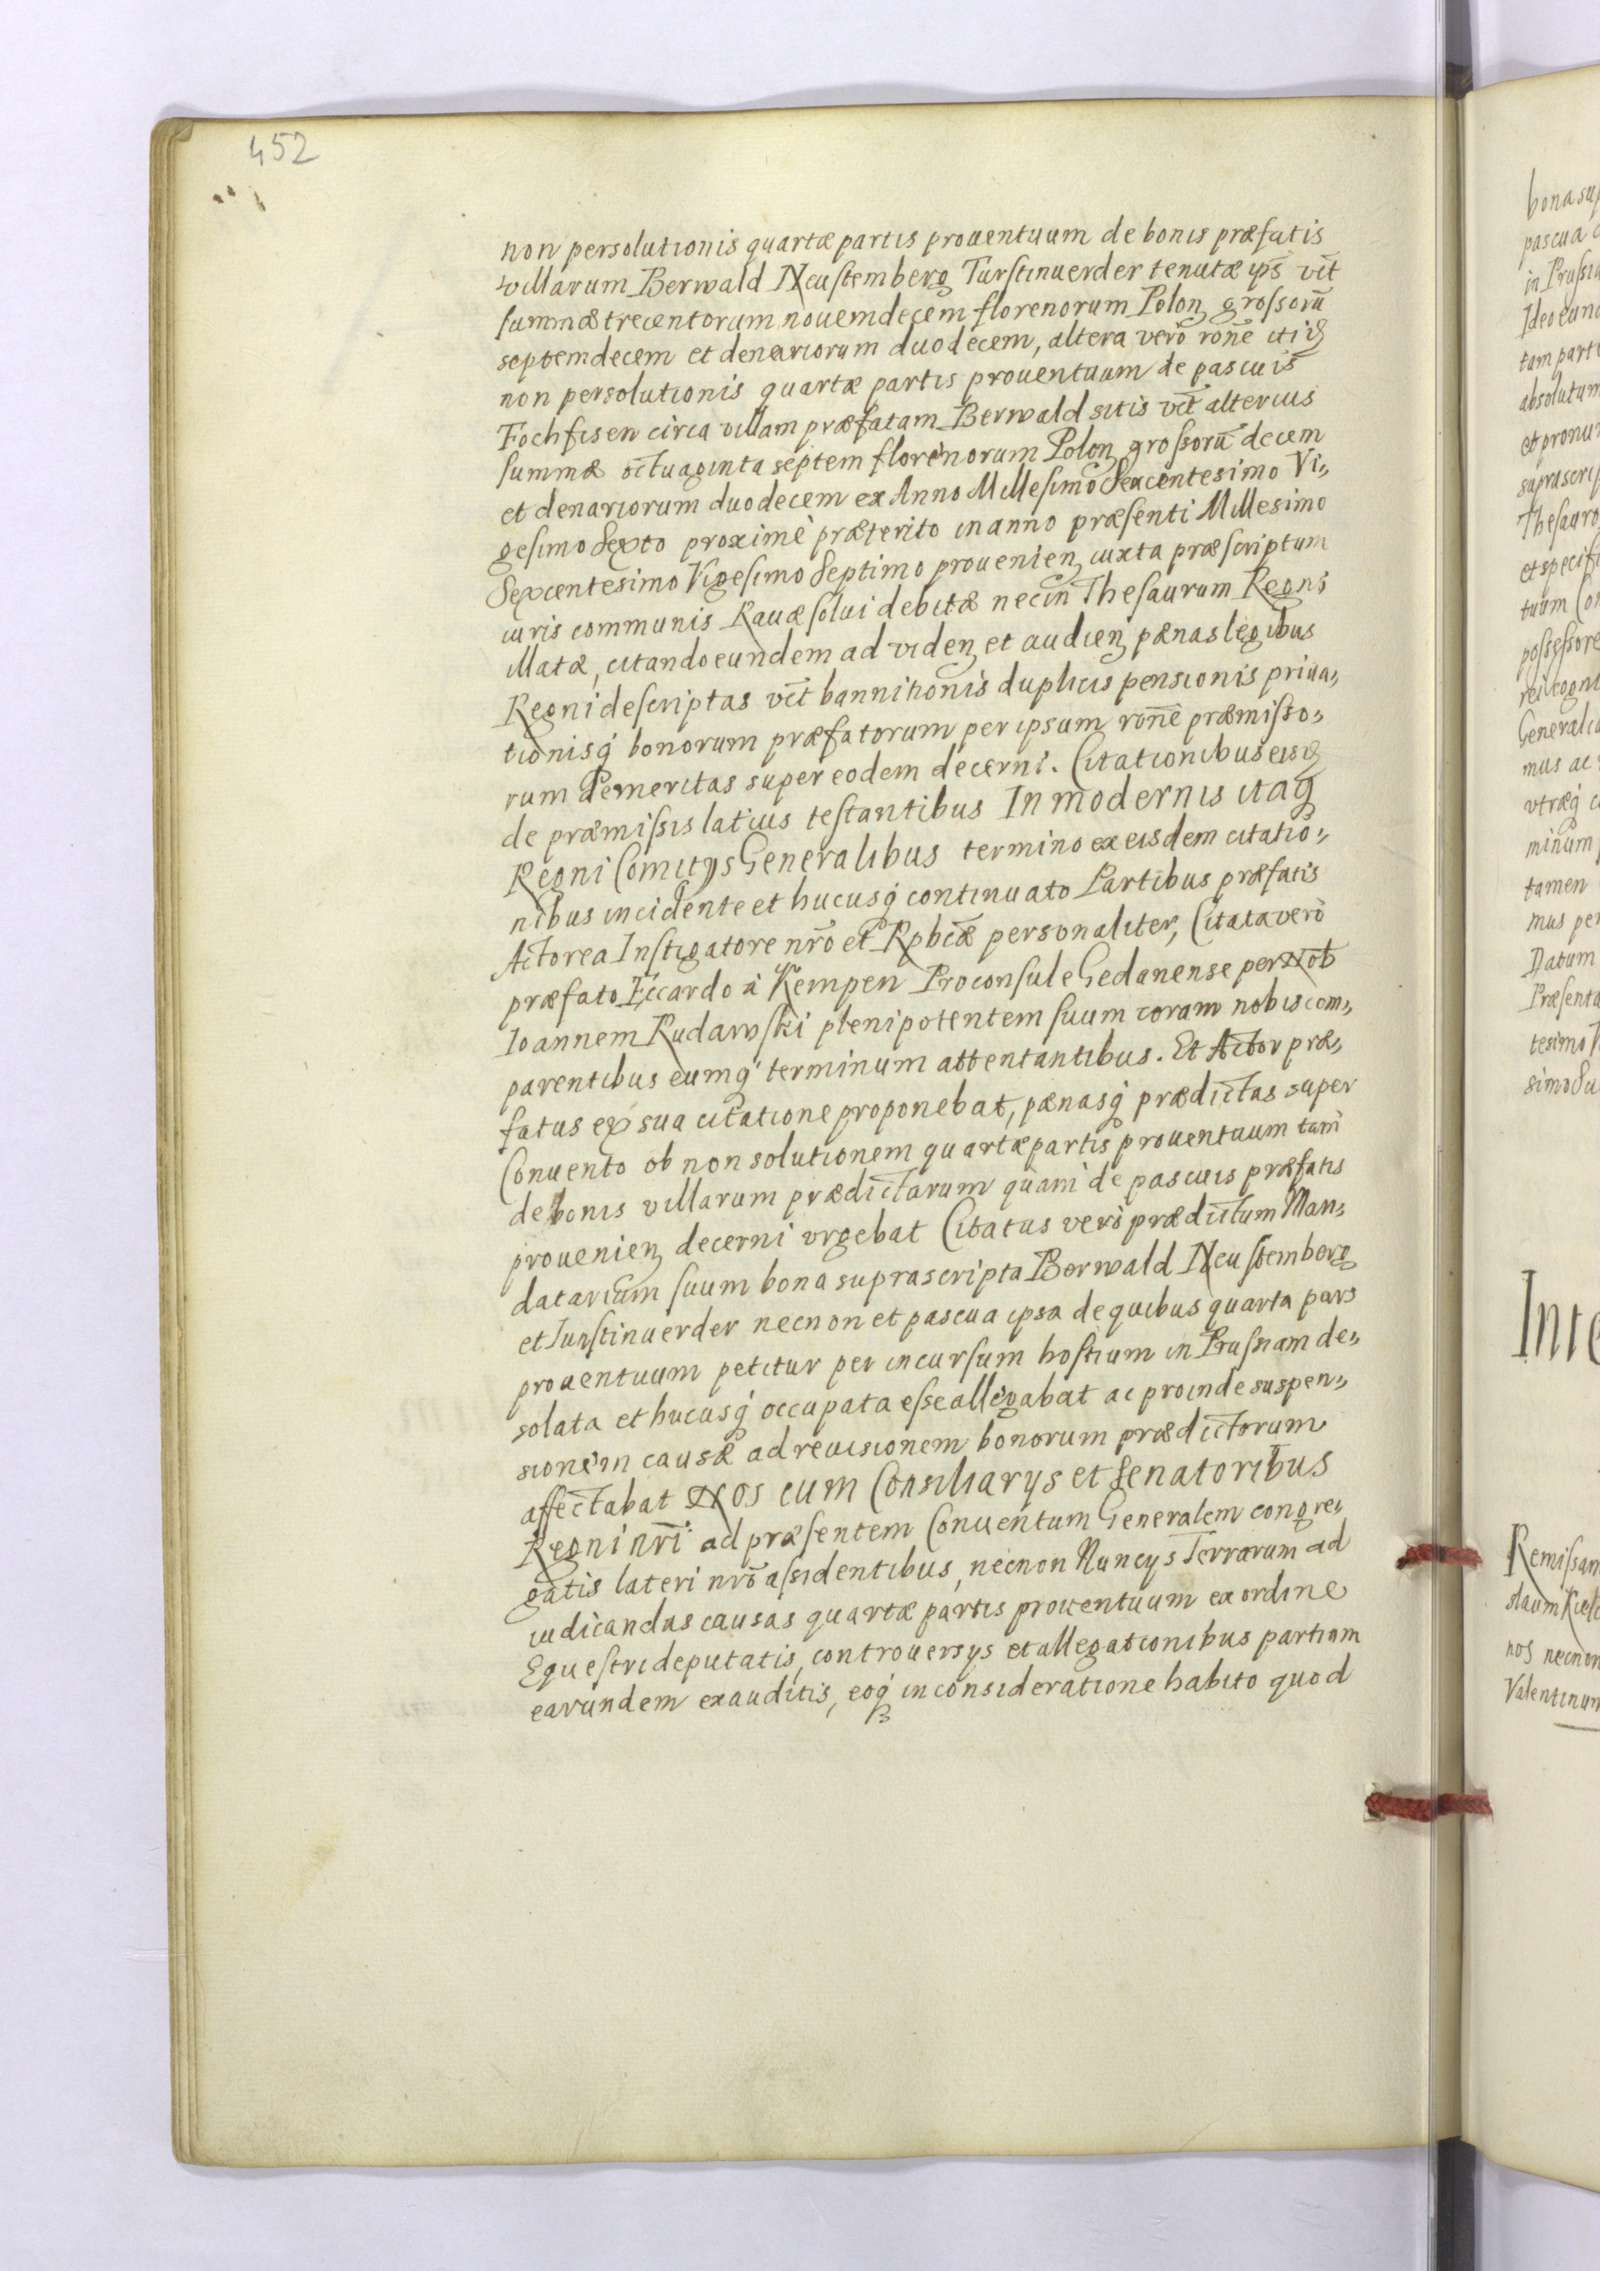 452
non persolutionis quartæ partis prouentuum de bonis præfatis
villarum Berwald Neustemberg Turstinuerder tenutæ ips̃ vĩt
summæ trecentorum nouemdecem florenorum Polon grossorũ
septemdecem et denariorum duodecem, altera verò rõne itid
non persolutionis quartæ partis prouentuum de pascuis
Fochfisen circa villam præfatam Berwald sitis vĩt alterius
summæ octuaginta septem florenorum Polon grossorũ decem
et denariorum duodecem ex Anno Millesimo Sexcentesimo Vi„
gesimo Sexto proximè præterito in anno præsenti Millesimo
Sexcentesimo Vigesimo Septimo prouenien iuxta præscriptum
iuris communis Rauæ solui debitæ nec in Thesaurum Regni
illatæ, citando eundem ad viden et audien pænas legibus
Regni descriptas vĩt bannitionis duplicis pensionis priua„
tionisq́ bonorum præfatorum per ipsum rõne præmisso„
rum demeritas super eodem decerni. Citationibus eisd
de præmissis latius testantibus In modernis itaq́
Regni Comitijs Generalibus termino ex eisdem citatio„
nibus incidente et hucusq́ continuato Partibus præfatis
Actorea Instigatore nr̃o et Rpbcæ personaliter, Citata verò
præfato Eccardo à Kempen Proconsule Gedanense per Nob
Ioannem Rudawski plenipotentem suum coram nobis com„
parentibus eumq́ terminum attentantibus. Et Actor præ„
fatus ex sua citatione proponebat, pænasq́ prædictas super
Conuento ob non solutionem quartæ partis prouentuum tam
de bonis villarum prædictarum quàm de pascuis præfatis
prouenien decerni vrgebat Citatus verò prædictum Man„
datarium suum bona suprascripta Berwald Neustemberg
et Turstinuerder necnon et pascua ipsa de quibus quarta pars
prouentuum petitur per incursum hostium in Prussiam de„
solata et hucusq́ occupata esse allegabat ac proinde suspen„
sionem causæ ad reuisionem bonorum prædictorum
affectabat Nos cum Consiliarys et Senatoribus
Regni nr̃i ad præsentem Conuentum Generalem congre„
gatis lateri nr̃o assidentibus, necnon Nuncys Terrarum ad
iudicandas causas quartæ partis prouentuum ex ordine
Equestri deputatis, controuersys et allegationibus partium
earundem exauditis, eoq́ in consideratione habito quod
bona sup
pascua
in Prussia
Ideo eund
tam parti
absolutam
et pronun
suprascrip
Thesauro
et specifi
tuum Con
possessore
rei cogni
Generalia
mus ac
vtræq́ c
minum
tamen
mus per
Datum
Præsenta
tesimo V
simo Su
Inte
Remissam
slaum Kiels
nos necnon
Valentinum